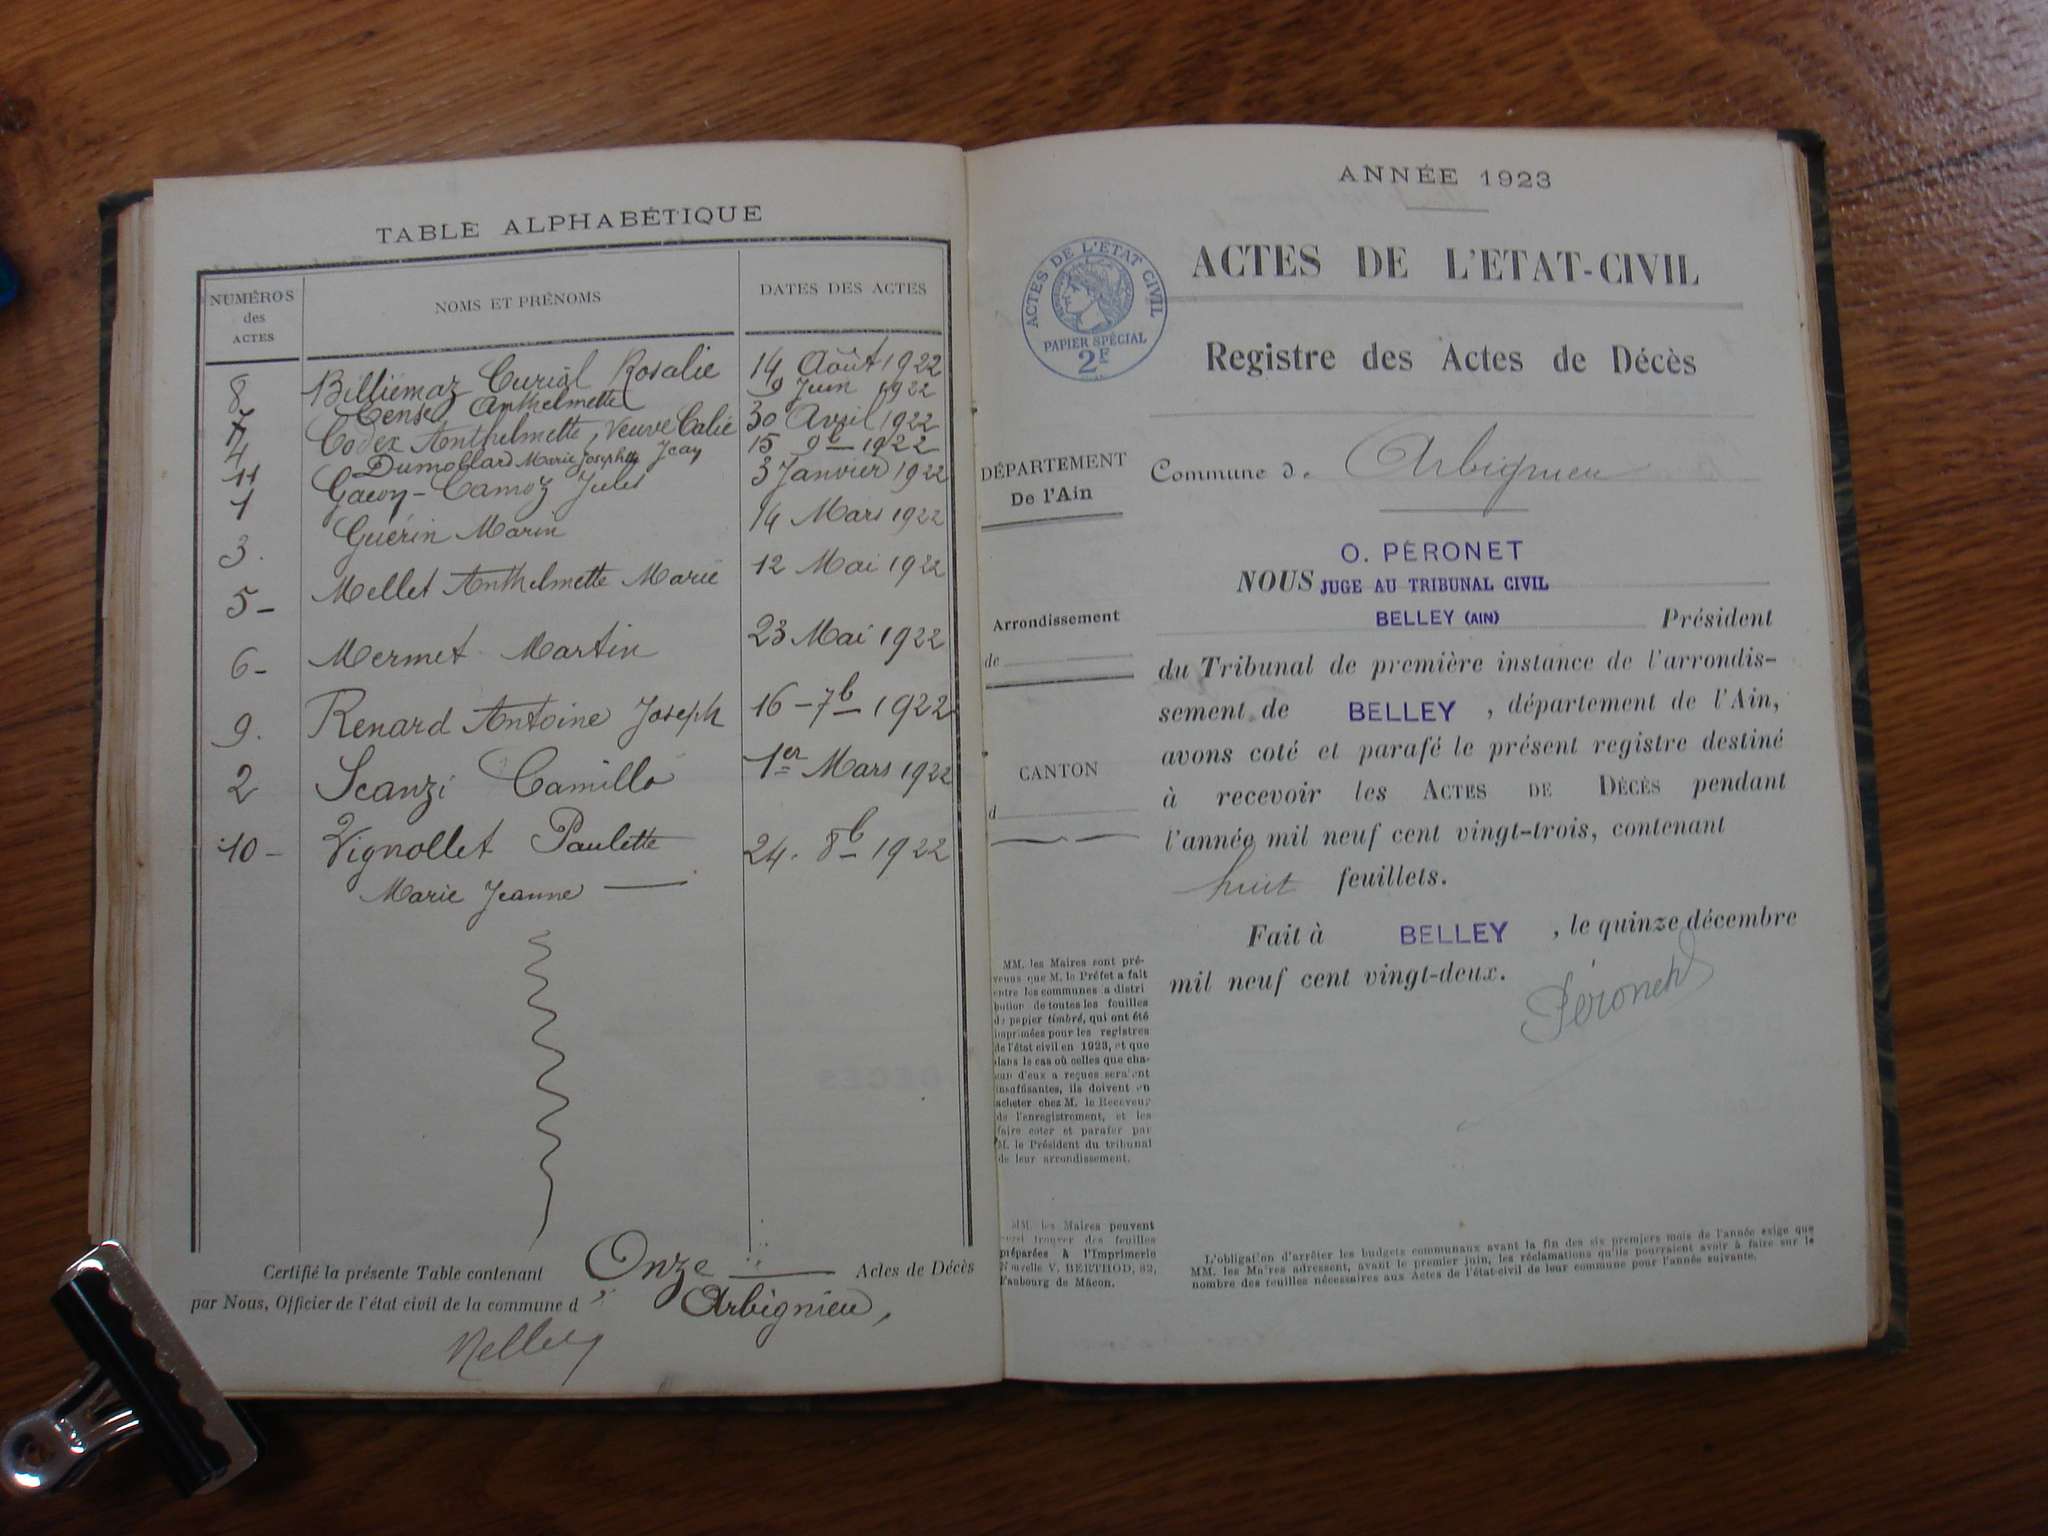 TABLE ALPHABÉTIQUE
NUMÉROS des ACTES
NOMS ET PRÉNOMS
DATES DES ACTES
8 Billiemaz Curial Rosalie 14 Août 1922
7 Cense Anthelmette 9 Juin 1922
4 Codex Anthelmette, Veuve Calié 30 Avril 1922
11 Dumollard Marie Josephte Jean 15 9b 1922
1 Gacon-Camoz Jules 3 Janvier 1922
3. Guérin Marin 14 Mars 1922
5- Mellet Anthelmette Marie 12 Mai 1922
6- Mermet Martin 23 Mai 1922
9. Renard Antoine Joseph 16-7b 1922
2 Scanzi Camillo 1er Mars 1922
10- Vignollet Paulette 24. 8b 1922
Marie Jeanne
Certifié la présente Table contenant Onze Actes de Décès
par Nous, Officier de l'état civil de la commune d' Arbignieu,
ANNÉE 1923
ACTES DE L'ÉTAT CIVIL
PAPIER SPÉCIAL
2F
ACTES DE L'ETAT-CIVIL
Registre des Actes de Décès
DÉPARTEMENT
De l'Ain
Commune d. Arbignieu
O. PÉRONET
NOUS JUGE AU TRIBUNAL CIVIL
BELLEY (AIN) Président
Arrondissement
de
du Tribunal de première instance de l'arrondis-
sement de BELLEY, département de l'Ain,
avons coté et parafé le présent registre destiné
CANTON
d
à recevoir les ACTES DE DÉCÈS pendant
l'année mil neuf cent vingt-trois, contenant
huit feuillets.
Fait à BELLEY, le quinze décembre
mil neuf cent vingt-deux.
Péronet
MM. les Maires sont pré-
venus que M. le Préfet a fait
entre les communes la distri
bution de toutes les feuilles
de papier timbré, qui ont été
imprimées pour les registres
de l'état civil en 1923, et que
dans le cas où celles que cha-
cun d'eux a reçues seraient
insuffisantes, ils doivent en
acheter chez M. le Receveur
de l'enregistrement, et les
faire coter et parafer par
M. le Président du tribunal
de leur arrondissement.
MM. les Maires peuvent
aussi trouver des feuilles
préparées à l'Imprimerie
Nouvelle V. BERTHOD, 82,
Faubourg de Mâcon.
L'obligation d'arrêter les budgets communaux avant la fin des six premiers mois de l'année exige que
MM. les Maires adressent, avant le premier juin, les réclamations qu'ils pourraient avoir à faire sur le
nombre des feuilles nécessaires aux Actes de l'état-civil de leur commune pour l'année suivante.